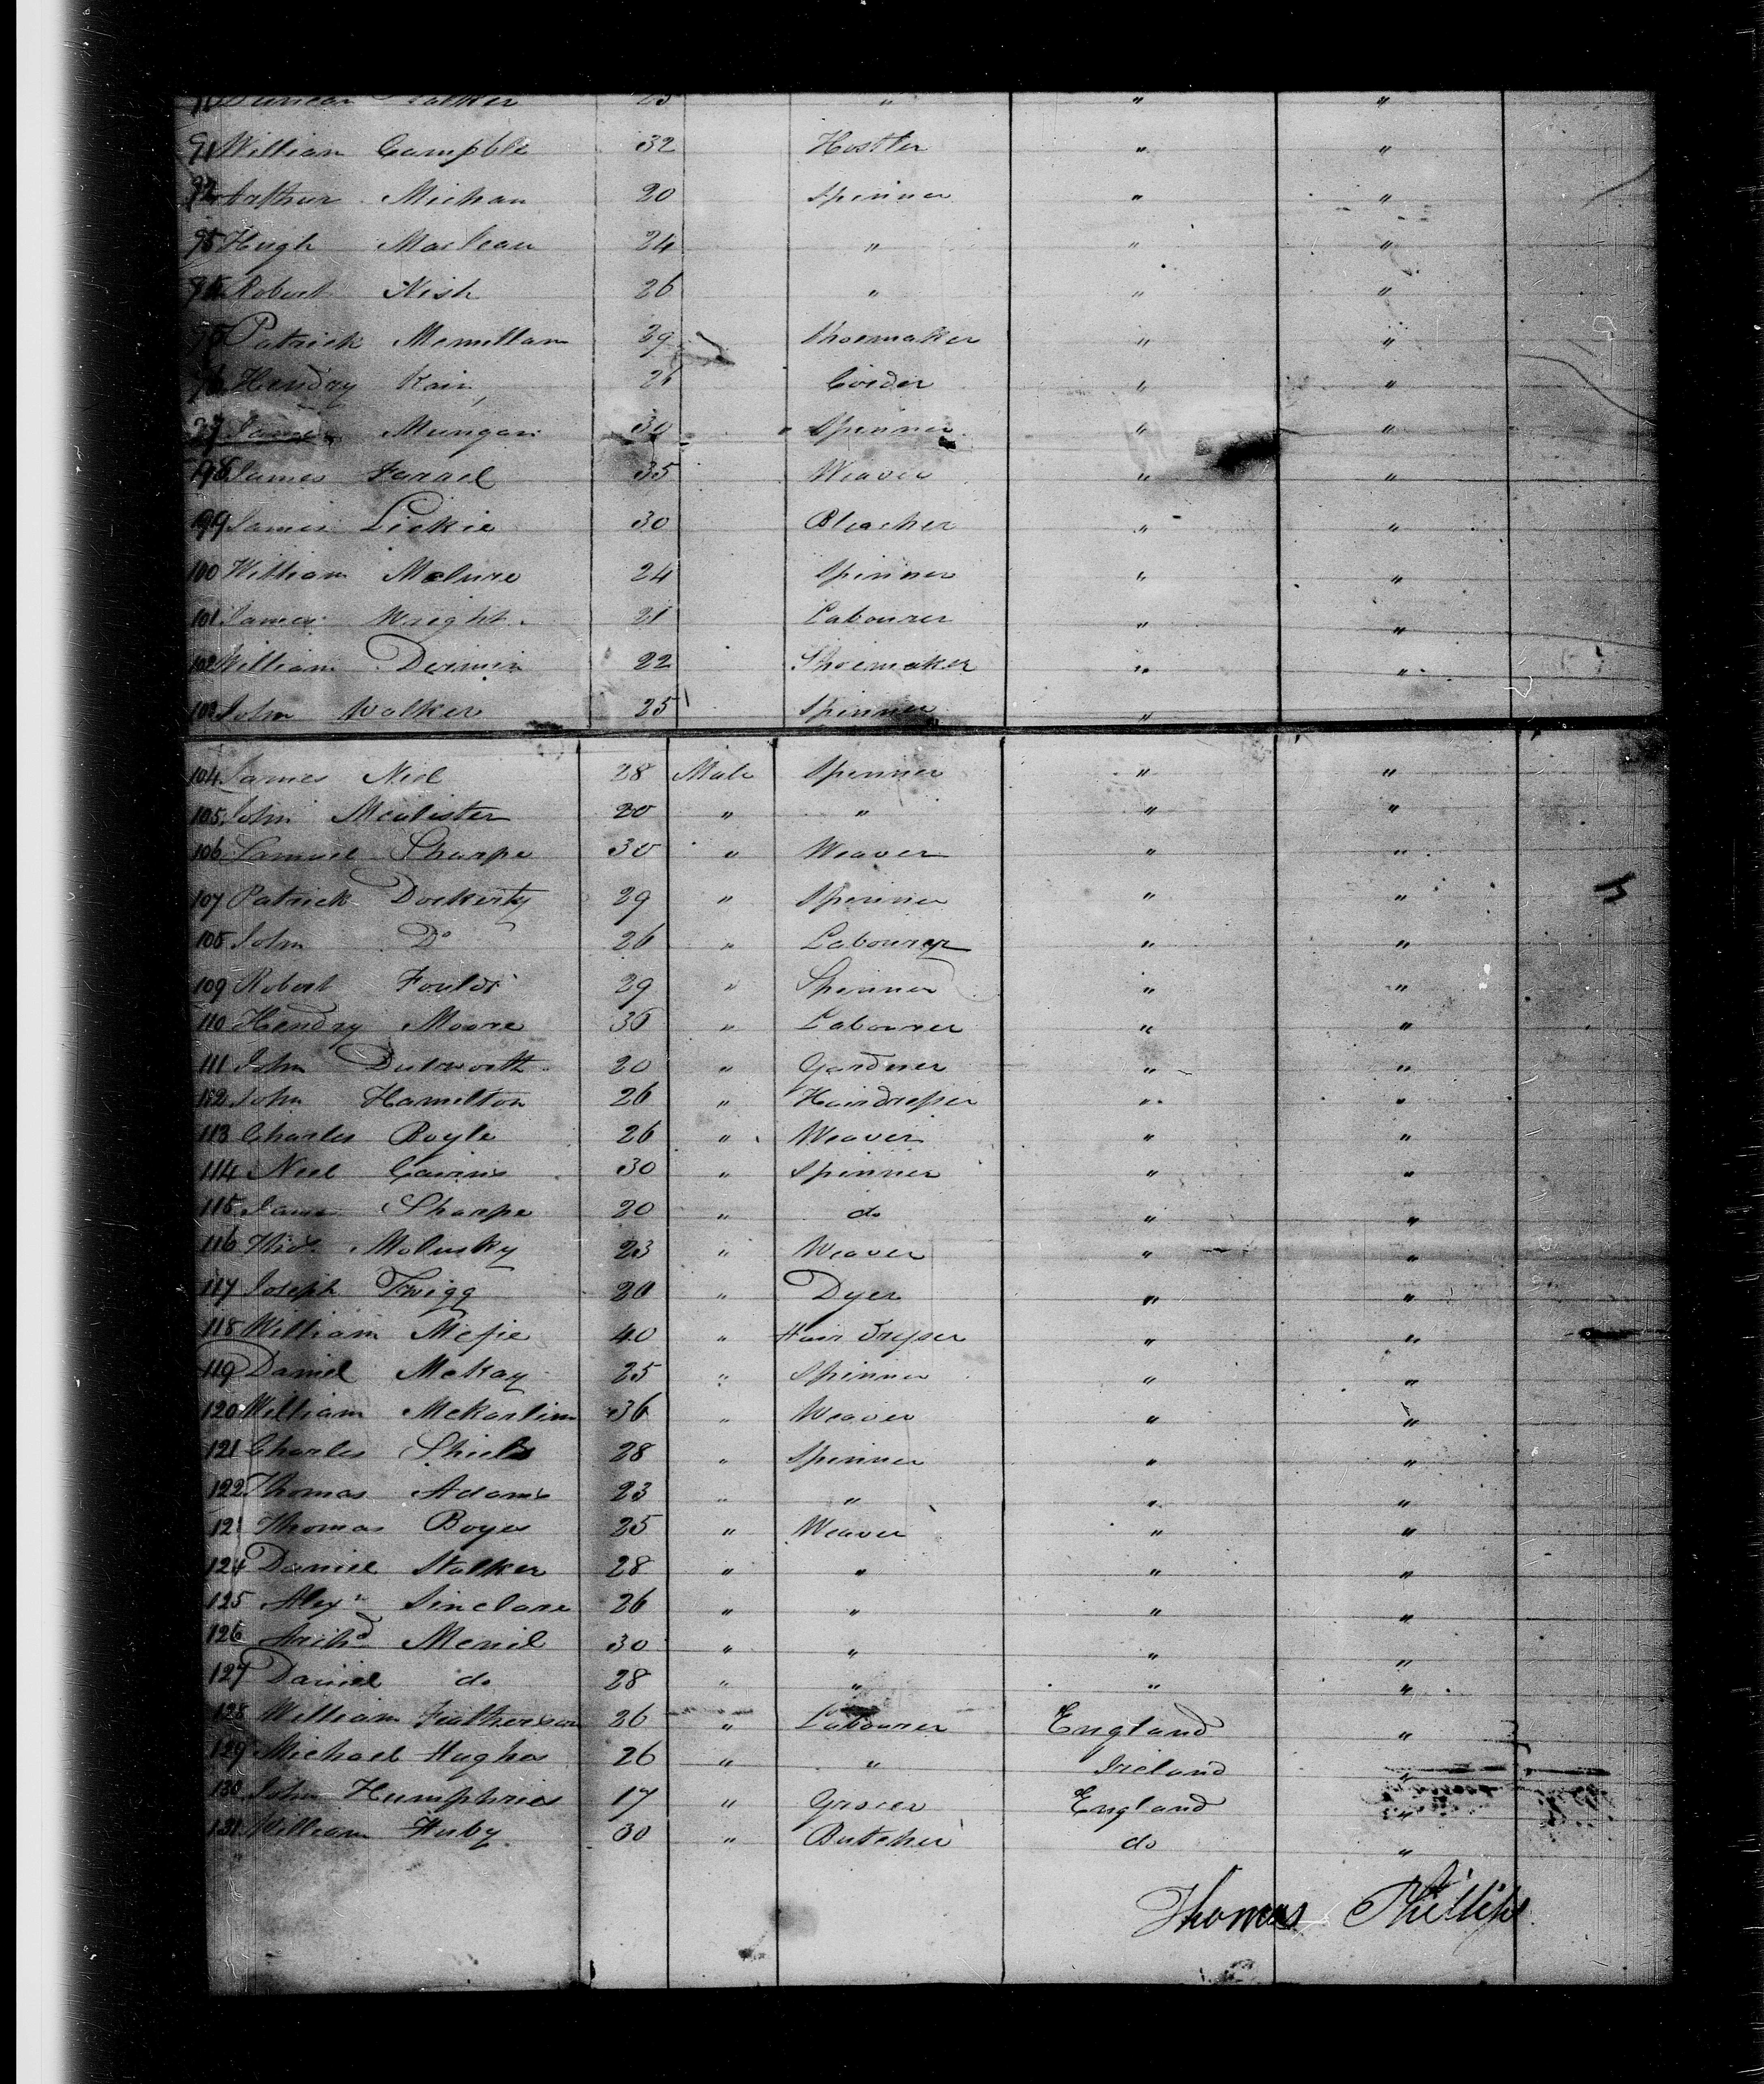 Duncan 25 " " "
91 William Campble 32 Hostler " "
92 Arthur Michan 20 Spinner " "
93 Hugh Maclean 24 " " "
94 Robert Nish 26 " " "
95 Patrick Mcmillan 29 Shoemaker " "
96 Hendry Kain 26 " "
97 James Mungan 30 Spinner " "
98 James Farrel 35 Weaver " "
99 James Lickie 30 Bleacher " "
100 William Mclure 24 Spinner " "
101 James Wright 21 Labourer " "
102 William Dermin 22 Shoemaker " "
103 John Walker 25 Spinner " "
104 James Niel 28 Male Spinner " "
105 John Mcalister 20 " " " "
106 Samuel Sharpe 30 " Weaver " "
107 Patrick Dockerty 29 " Spinner " "
108 John Do 26 " Labourer " "
109 Robert Foulds 29 " Spinner " "
110 Hendry Moore 36 " Labourer " "
111 John Dutworth 20 " Gardner " "
112 John Hamilton 26 " Hairdresser " "
113 Charles Boyle 26 " Weaver " "
114 Neil Cairns 30 " Spinner " "
115 James Sharpe 20 " do " "
116 Thos Mclusky 23 " Weaver " "
117 Joseph Twigg 20 " Dyer " "
118 William Mcfie 40 " Hair dresser " "
119 Daniel McKay 25 " Spinner " "
120 William McKarlim 36 " Weaver " "
121 Charles Shiels 28 " Spinner " "
122 Thomas Adams 23 " " " "
121 Thomas Boyes 25 " Weaver " "
124 Daniel Stalker 28 " " " "
125 Alexr Sinclare 26 " " " "
126 Archd Mcniel 30 " " " "
127 Daniel do 28 " " " "
128 William Featherson 26 " Labourer England "
129 Michael Hughes 26 " " Ireland "
130 John Humphries 17 " Grocer England "
131 William Huby 30 " Butcher do "
Thomas Phillips